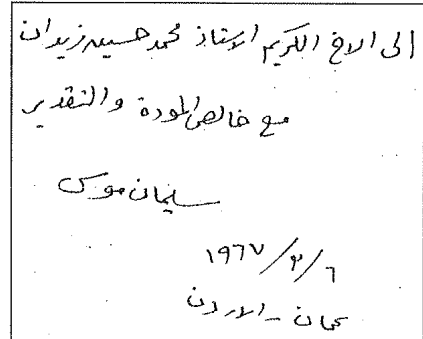 الى الاخ الكريم الاستاذ محمد حسين زيدان
مع خالص المودة والتقدير
سليمان موسى
٦/٢/١٩٦٧
عمان - الاردن